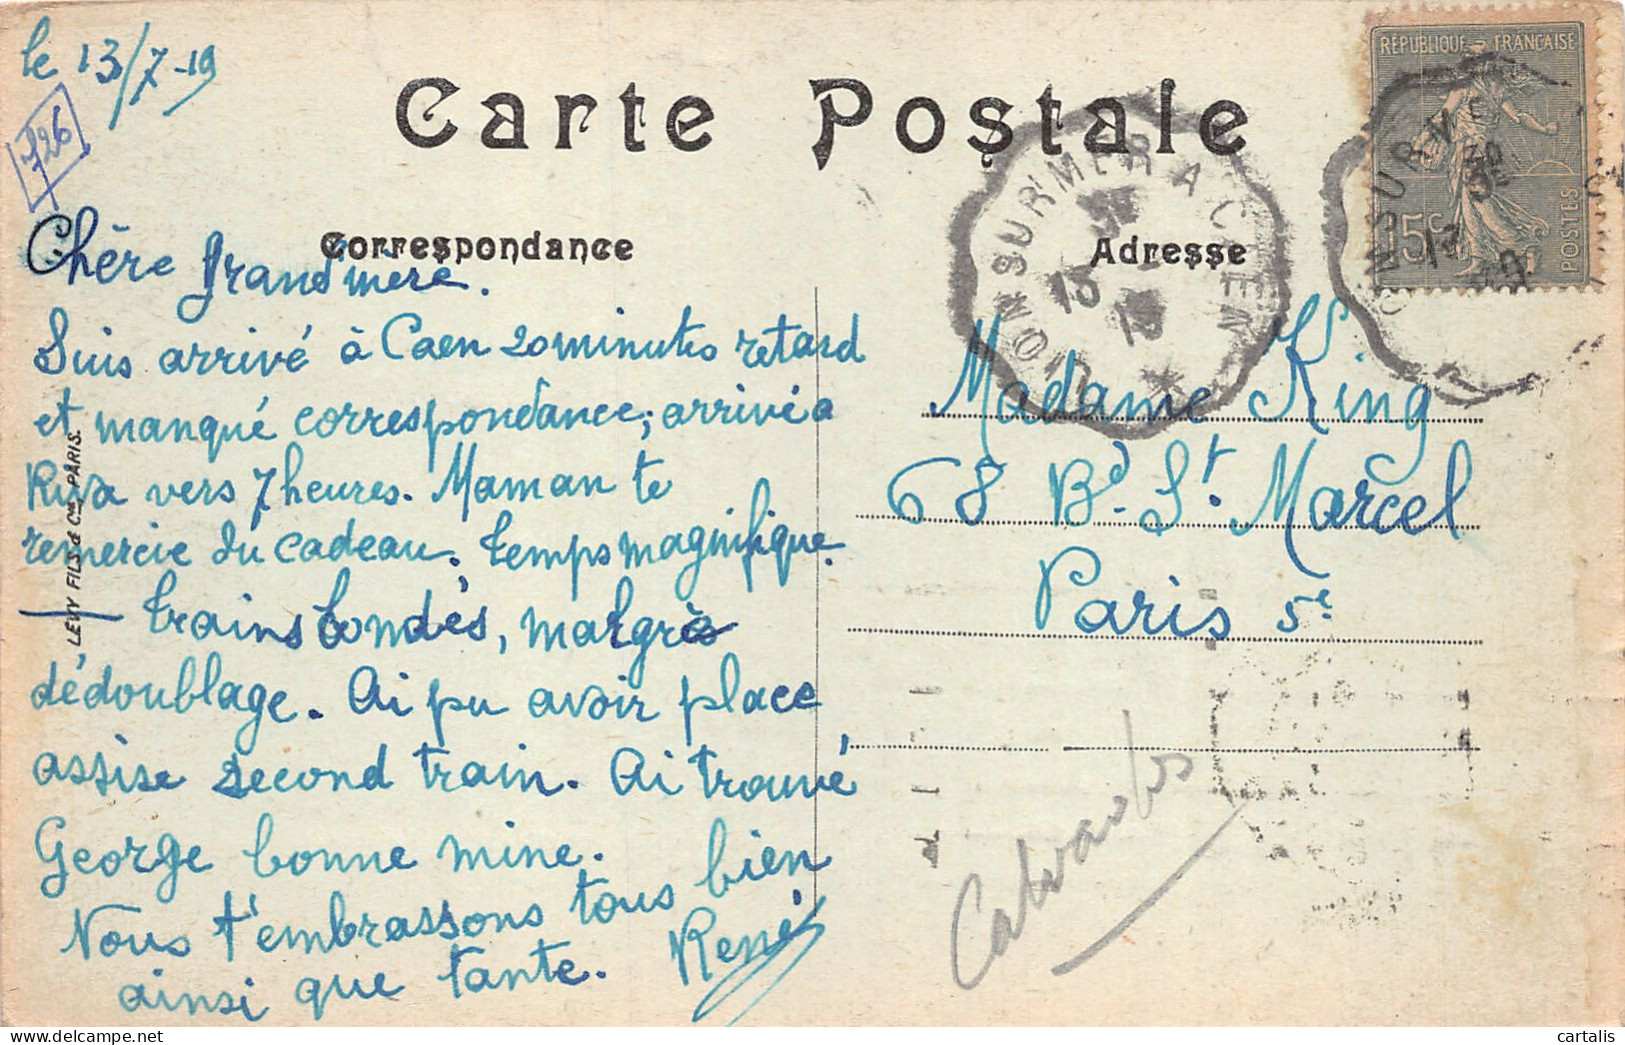 le 13/7-19
726
Carte Postale
RÉPUBLIQUE FRANÇAISE
15c
POSTES
Correspondance
Adresse
LION SUR MER A CAEN
13
Chère Grand'mère.
Suis arrivé à Caen 20 minutes retard
et manqué correspondance; arrivé a
Riva vers 7 heures. Maman te
remercie du cadeau. Temps magnifique.
— trains bondés, malgré
dédoublage. Ai pu avoir place
assise second train. Ai trouvé
George bonne mine.
Nous t'embrassons tous bien
ainsi que tante. René
Madame King
68 Bd. St. Marcel
Paris 5e
Calvados
LEVY FILS & Cie, PARIS.
cartalis